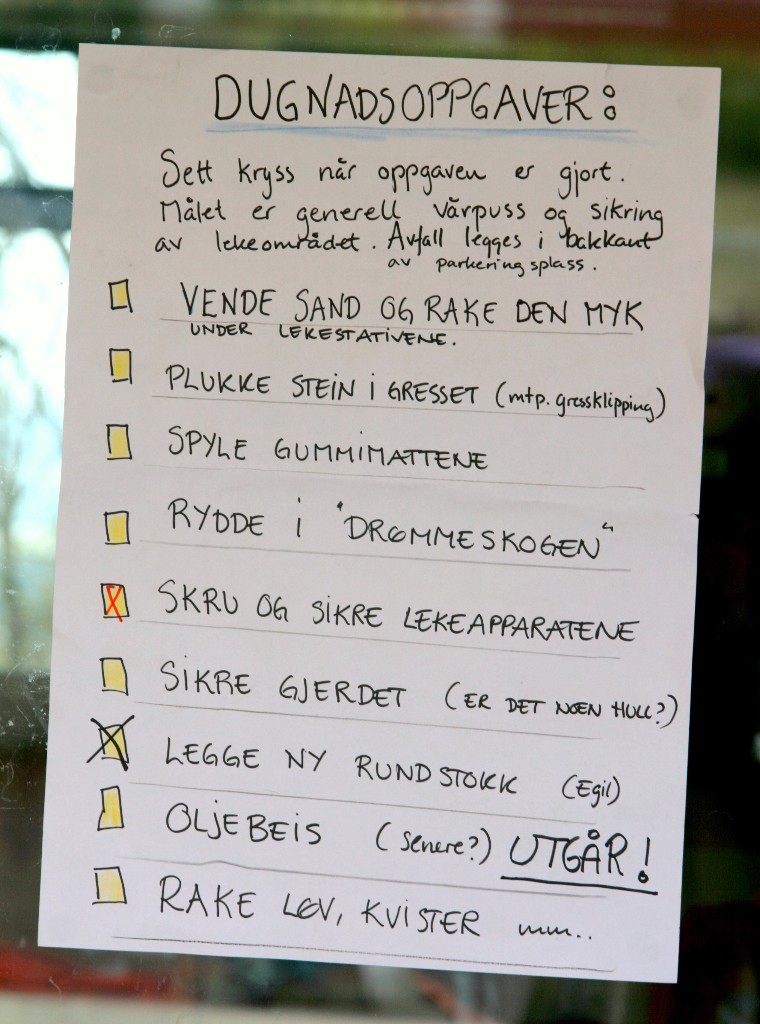 DUGNADSOPPGAVER:
Sett kryss når oppgaven er gjort.
Målet er generell vårpuss og sikring
av lekeområdet. Avfall legges i bakkant
av parkeringsplass.
VENDE SAND OG RAKE DEN MYK
UNDER LEKESTATIVENE.
PLUKKE STEIN I GRESSET (mtp. gressklipping)
SPYLE GUMMIMATTENE
RYDDE i "DRØMMESKOGEN"
SKRU OG SIKRE LEKEAPPARATENE
SIKRE GJERDET (ER DET NOEN HULL?)
LEGGE NY RUNDSTOKK (Egil)
OLJEBEIS (senere?) UTGÅR!
RAKE LØV, KVISTER mm..